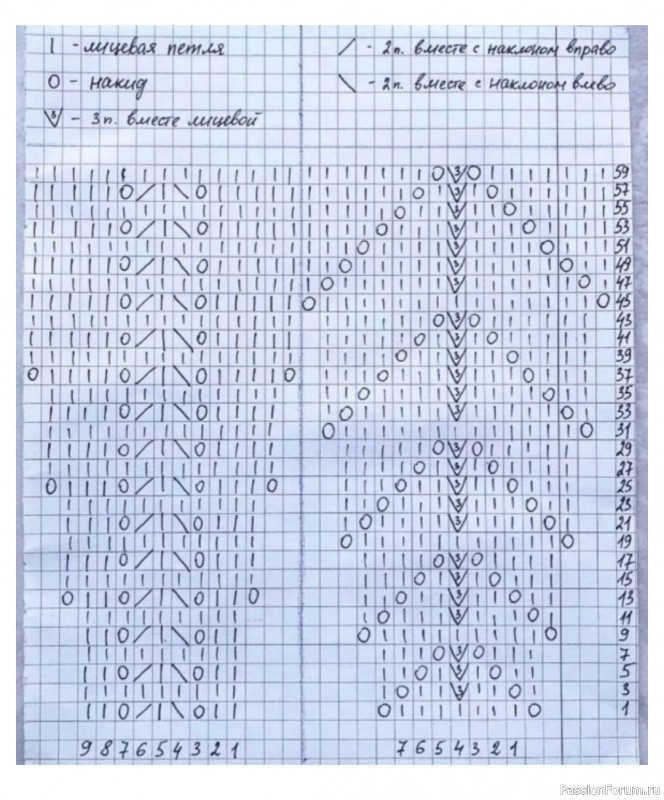 | - лицевая петля
/ - 2п. вместе с наклоном вправо
О - накид
\ - 2п. вместе с наклоном влево
3 - 3п. вместе лицевой
59
57
55
53
51
49
47
45
43
41
39
37
35
33
31
29
27
25
23
21
19
17
15
13
11
9
7
5
3
1
9 8 7 6 5 4 3 2 1
7 6 5 4 3 2 1
PassionForum.ru